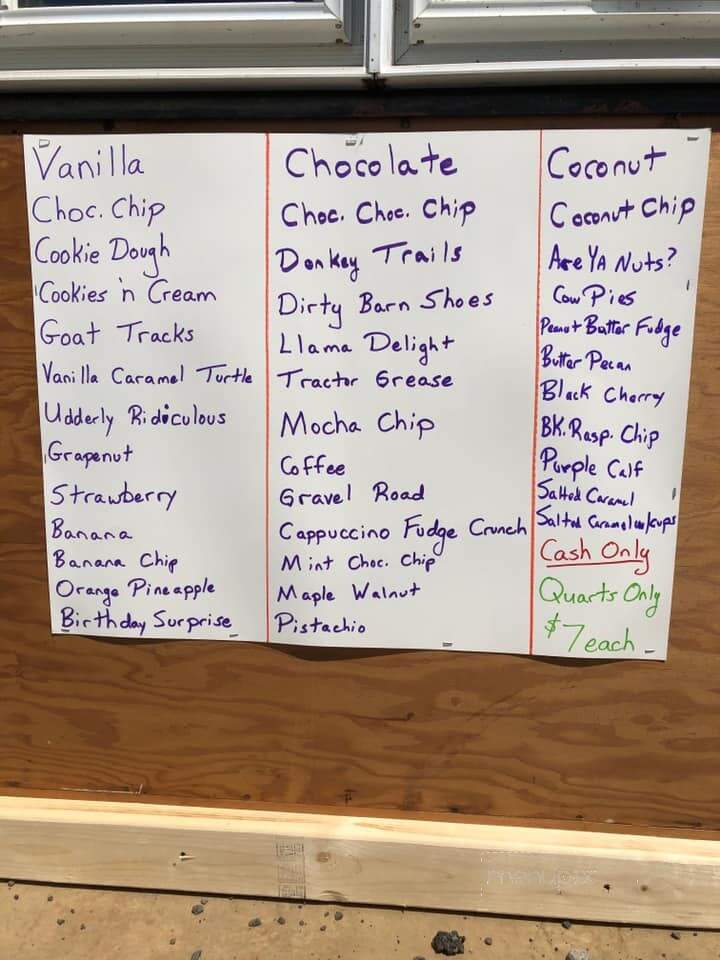 Vanilla
Choc. Chip
Cookie Dough
Cookies 'n Cream
Goat Tracks
Vanilla Caramel Turtle
Udderly Ridiculous
Grapenut
Strawberry
Banana
Banana Chip
Orange Pineapple
Birthday Surprise
Chocolate
Choc. Choc. Chip
Donkey Trails
Dirty Barn Shoes
Llama Delight
Tractor Grease
Mocha Chip
Coffee
Gravel Road
Cappuccino Fudge Crunch
Mint Choc. Chip
Maple Walnut
Pistachio
Coconut
Coconut Chip
Are YA Nuts?
Cow Pies
Peanut Butter Fudge
Butter Pecan
Black Cherry
BK. Rasp. Chip
Purple Calf
Salted Caramel
Salted Caramel w/cups
Cash Only
Quarts Only
$7 each